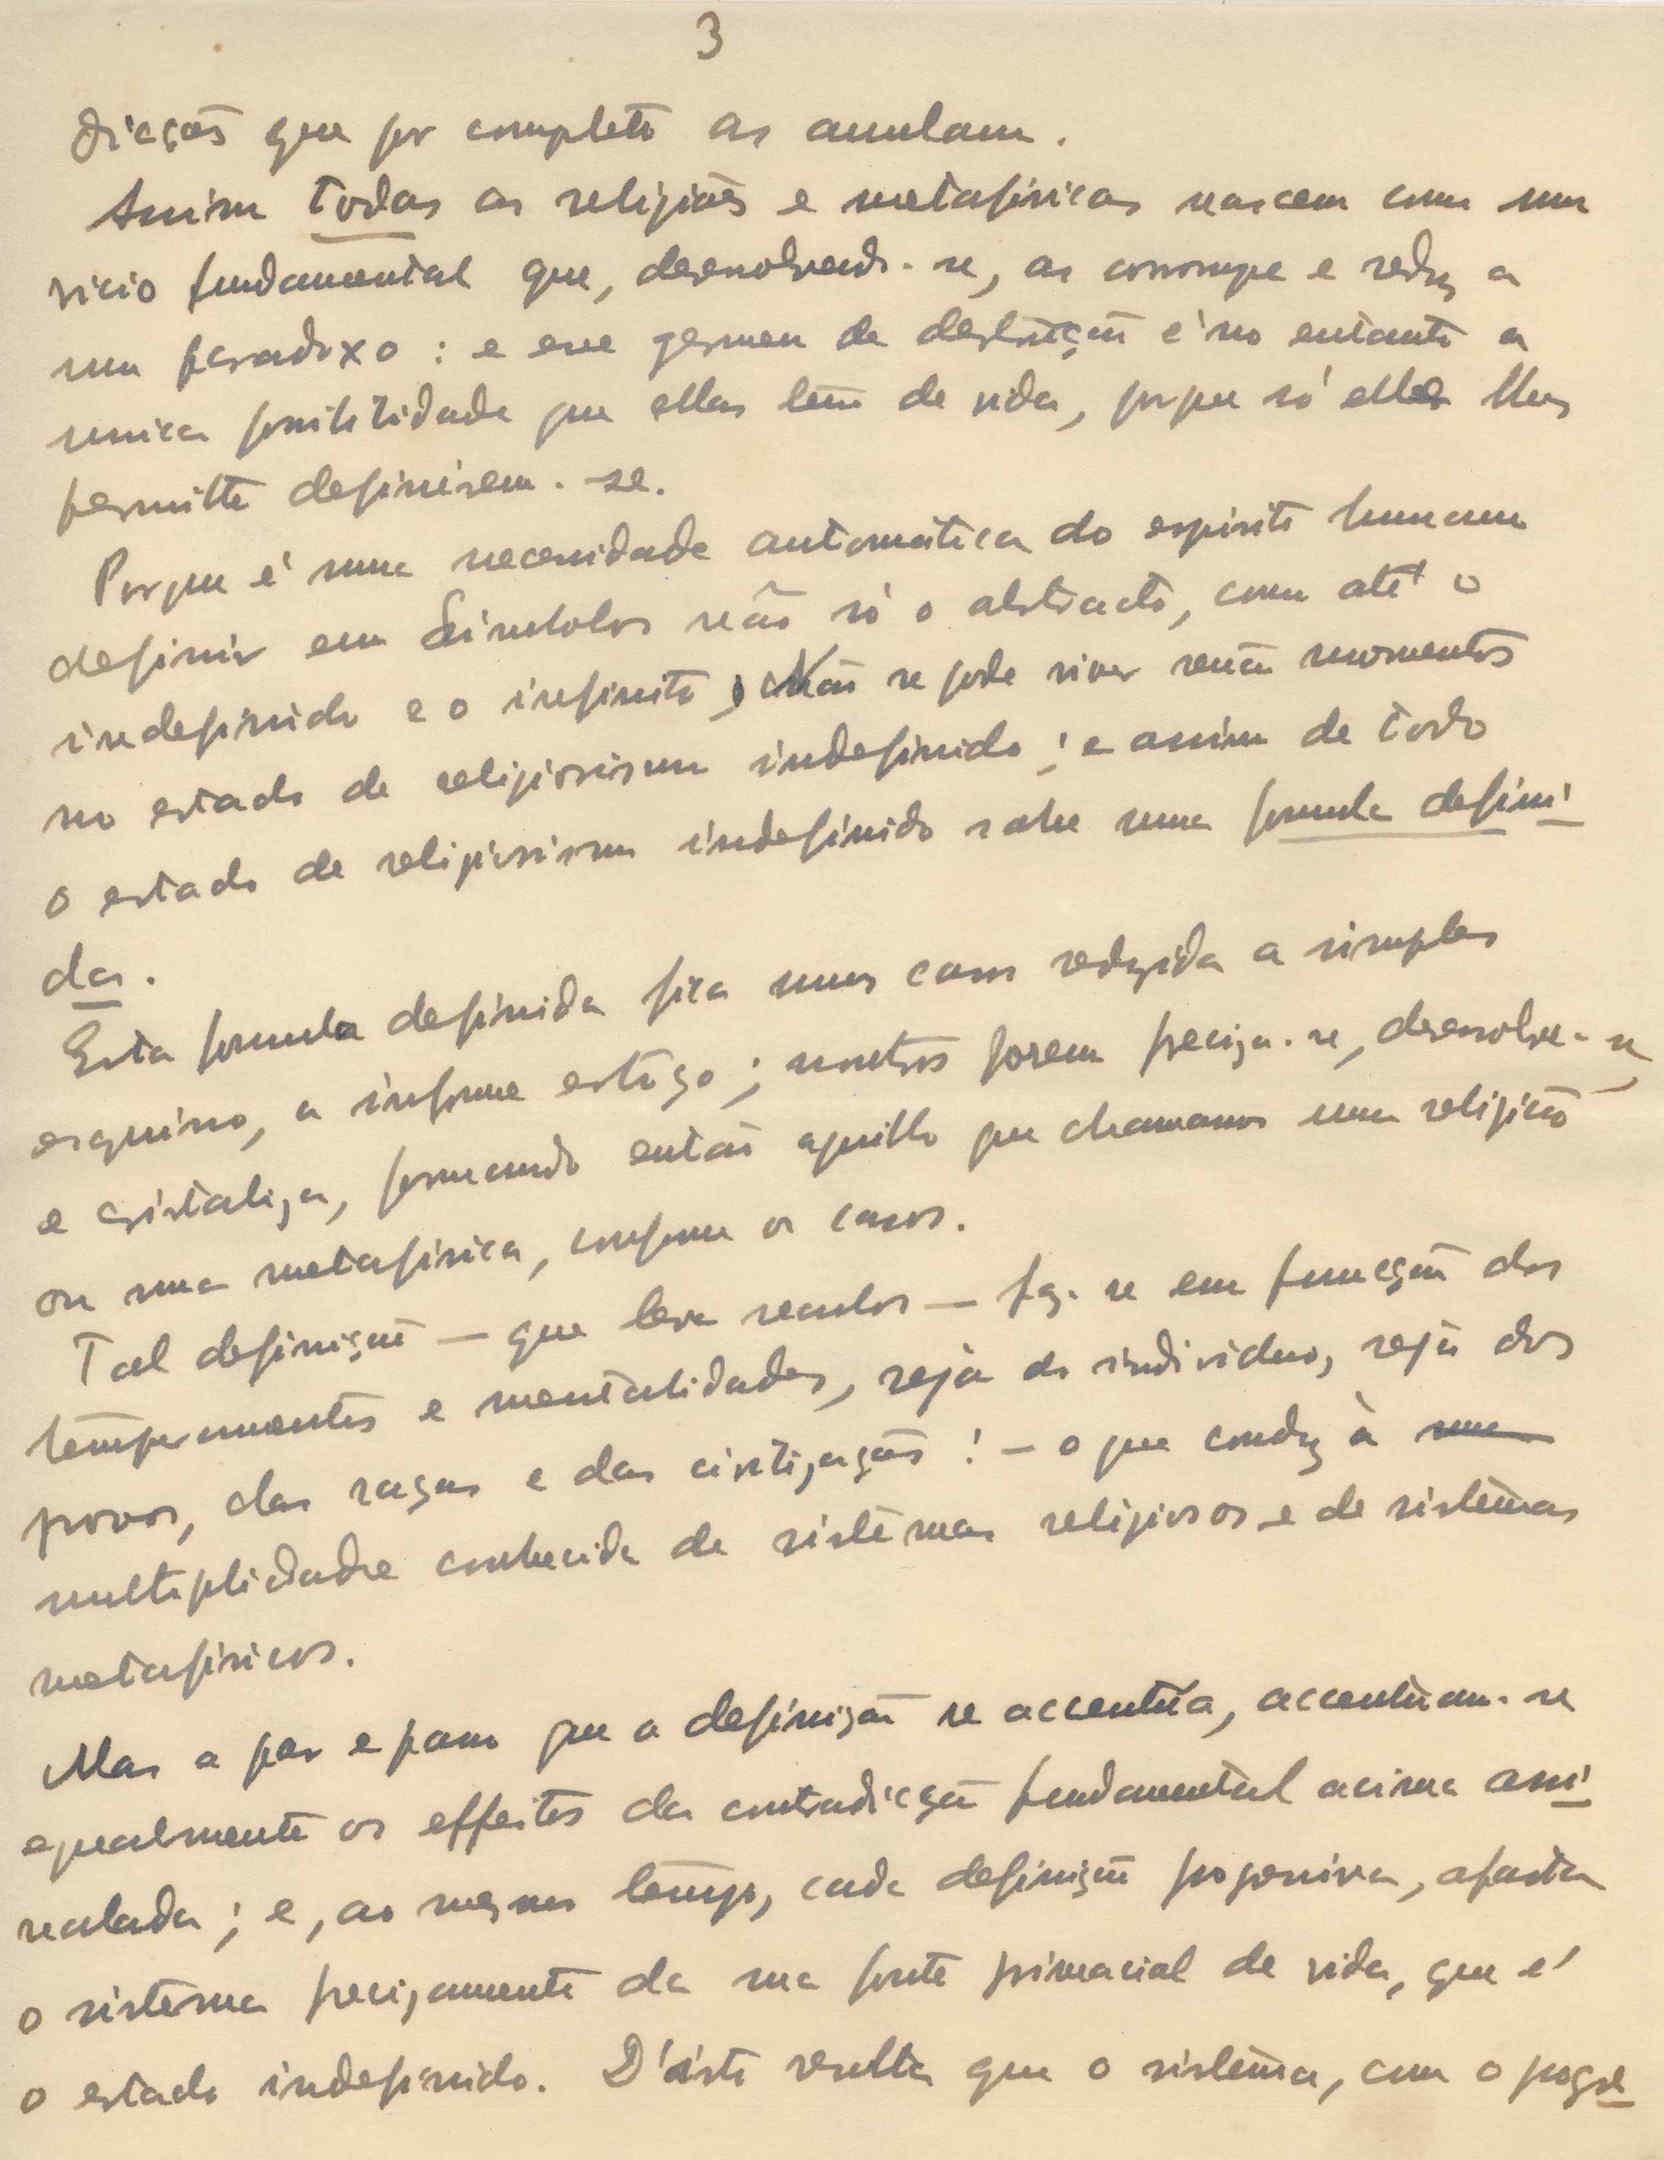 3
dicções que por completo as anulam.
Assim todas as religiões e metafisicas nascem com um
vicio fundamental que, desenvolvendo-se, as corrompe e reduz a
um paradoxo: e esse germen de destruição é no entanto a
unica possibilidade que ellas tem de vida, porque só elle lhes
permitte definirem-se.
Porque é uma necessidade automática do espirito humano
definir em simbolos não só o abstracto, como até o
indefinido e o infinito; Não se pode viver senão momentos
no estado de religiosismo indefinido; e assim de todo
o estado de religiosismo indefinido sahe uma formula defini-
da.
Esta formula definida fica nuns casos reduzida a simples
esquisso, a informe esbôço; noutros porem preciza-se, desenvolve-se,
e cristaliza, formando então aquillo que chamamos uma religião
ou uma metafisica, conforme os casos.
Tal definição — que leva seculos — faz-se em funcção dos
temperamentos e mentalidades, seja do individuo, seja dos
povos, das raças e das civilizações! — o que conduz à uma
multiplicidade conhecida de sistemas religiosos e de sistemas
metafisicos.
Mas a par e passo que a definição se accentúa, accentuam-se
egualmente os effeitos da contradicção fundamental acima assi-
nalada; e, ao mesmo tempo, cada definição progressiva, afasta
o sistema precizamente da sua fonte primacial de vida, que é
o estado indefinido. D'isto resulta que o sistema, com o progre-